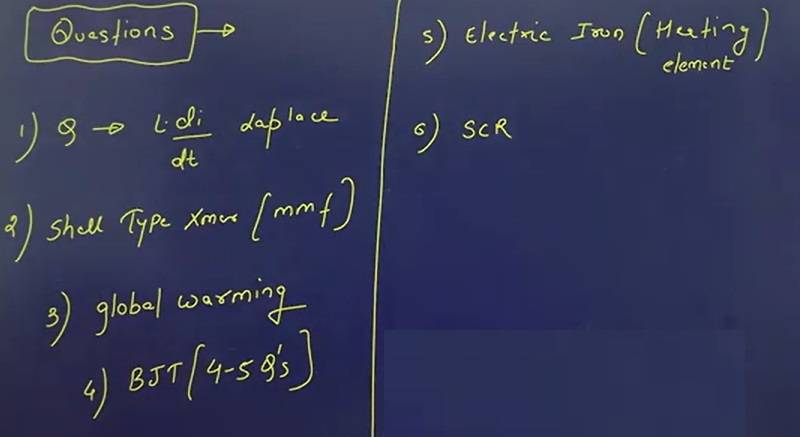 Questions →
1) Q → L.di/dt daplace
2) Shell Type Xmer [mmf]
3) global warming
4) BJT [4-5 Q's]
5) Electric Iron (Heating element)
6) SCR